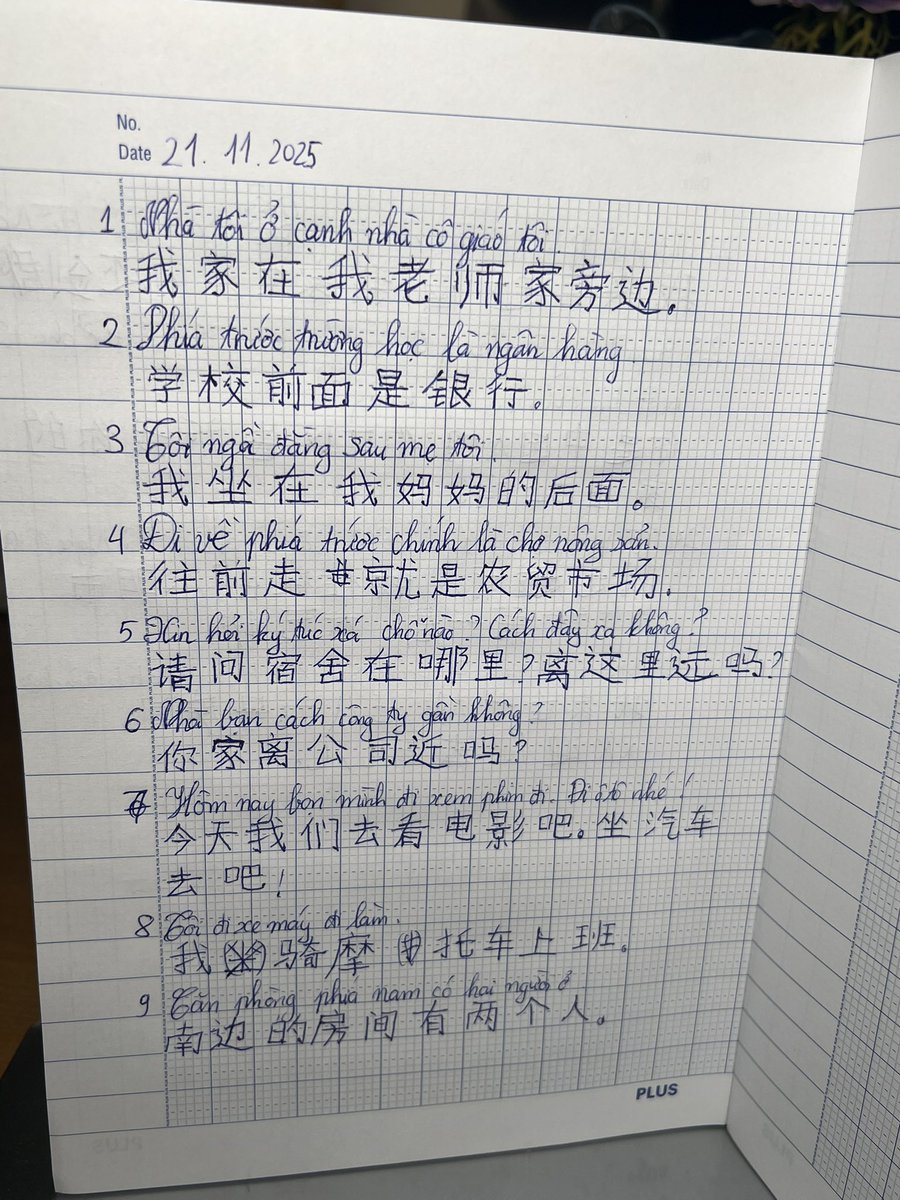 No.
Date 21.11.2025
1 Nhà tôi ở cạnh nhà cô giáo tôi.
我家在我老师家旁边。
2 Phía trước trường học là ngân hàng.
学校前面是银行。
3 Tôi ngồi đằng sau mẹ tôi.
我坐在我妈妈的后面。
4 Đi về phía trước chính là chợ nông sản.
往前走就是农贸市场.
5 Xin hỏi ký túc xá chỗ nào? Cách đây xa không?
请问宿舍在哪里?离这里远吗?
6 Nhà bạn cách công ty gần không?
你家离公司近吗?
7 Hôm nay bọn mình đi xem phim đi. Đi ô tô nhé!
今天我们去看电影吧。坐汽车
去吧!
8 Tôi đi xe máy đi làm.
我骑摩托车上班。
9 Căn phòng phía nam có hai người ở
南边的房间有两个人。
PLUS